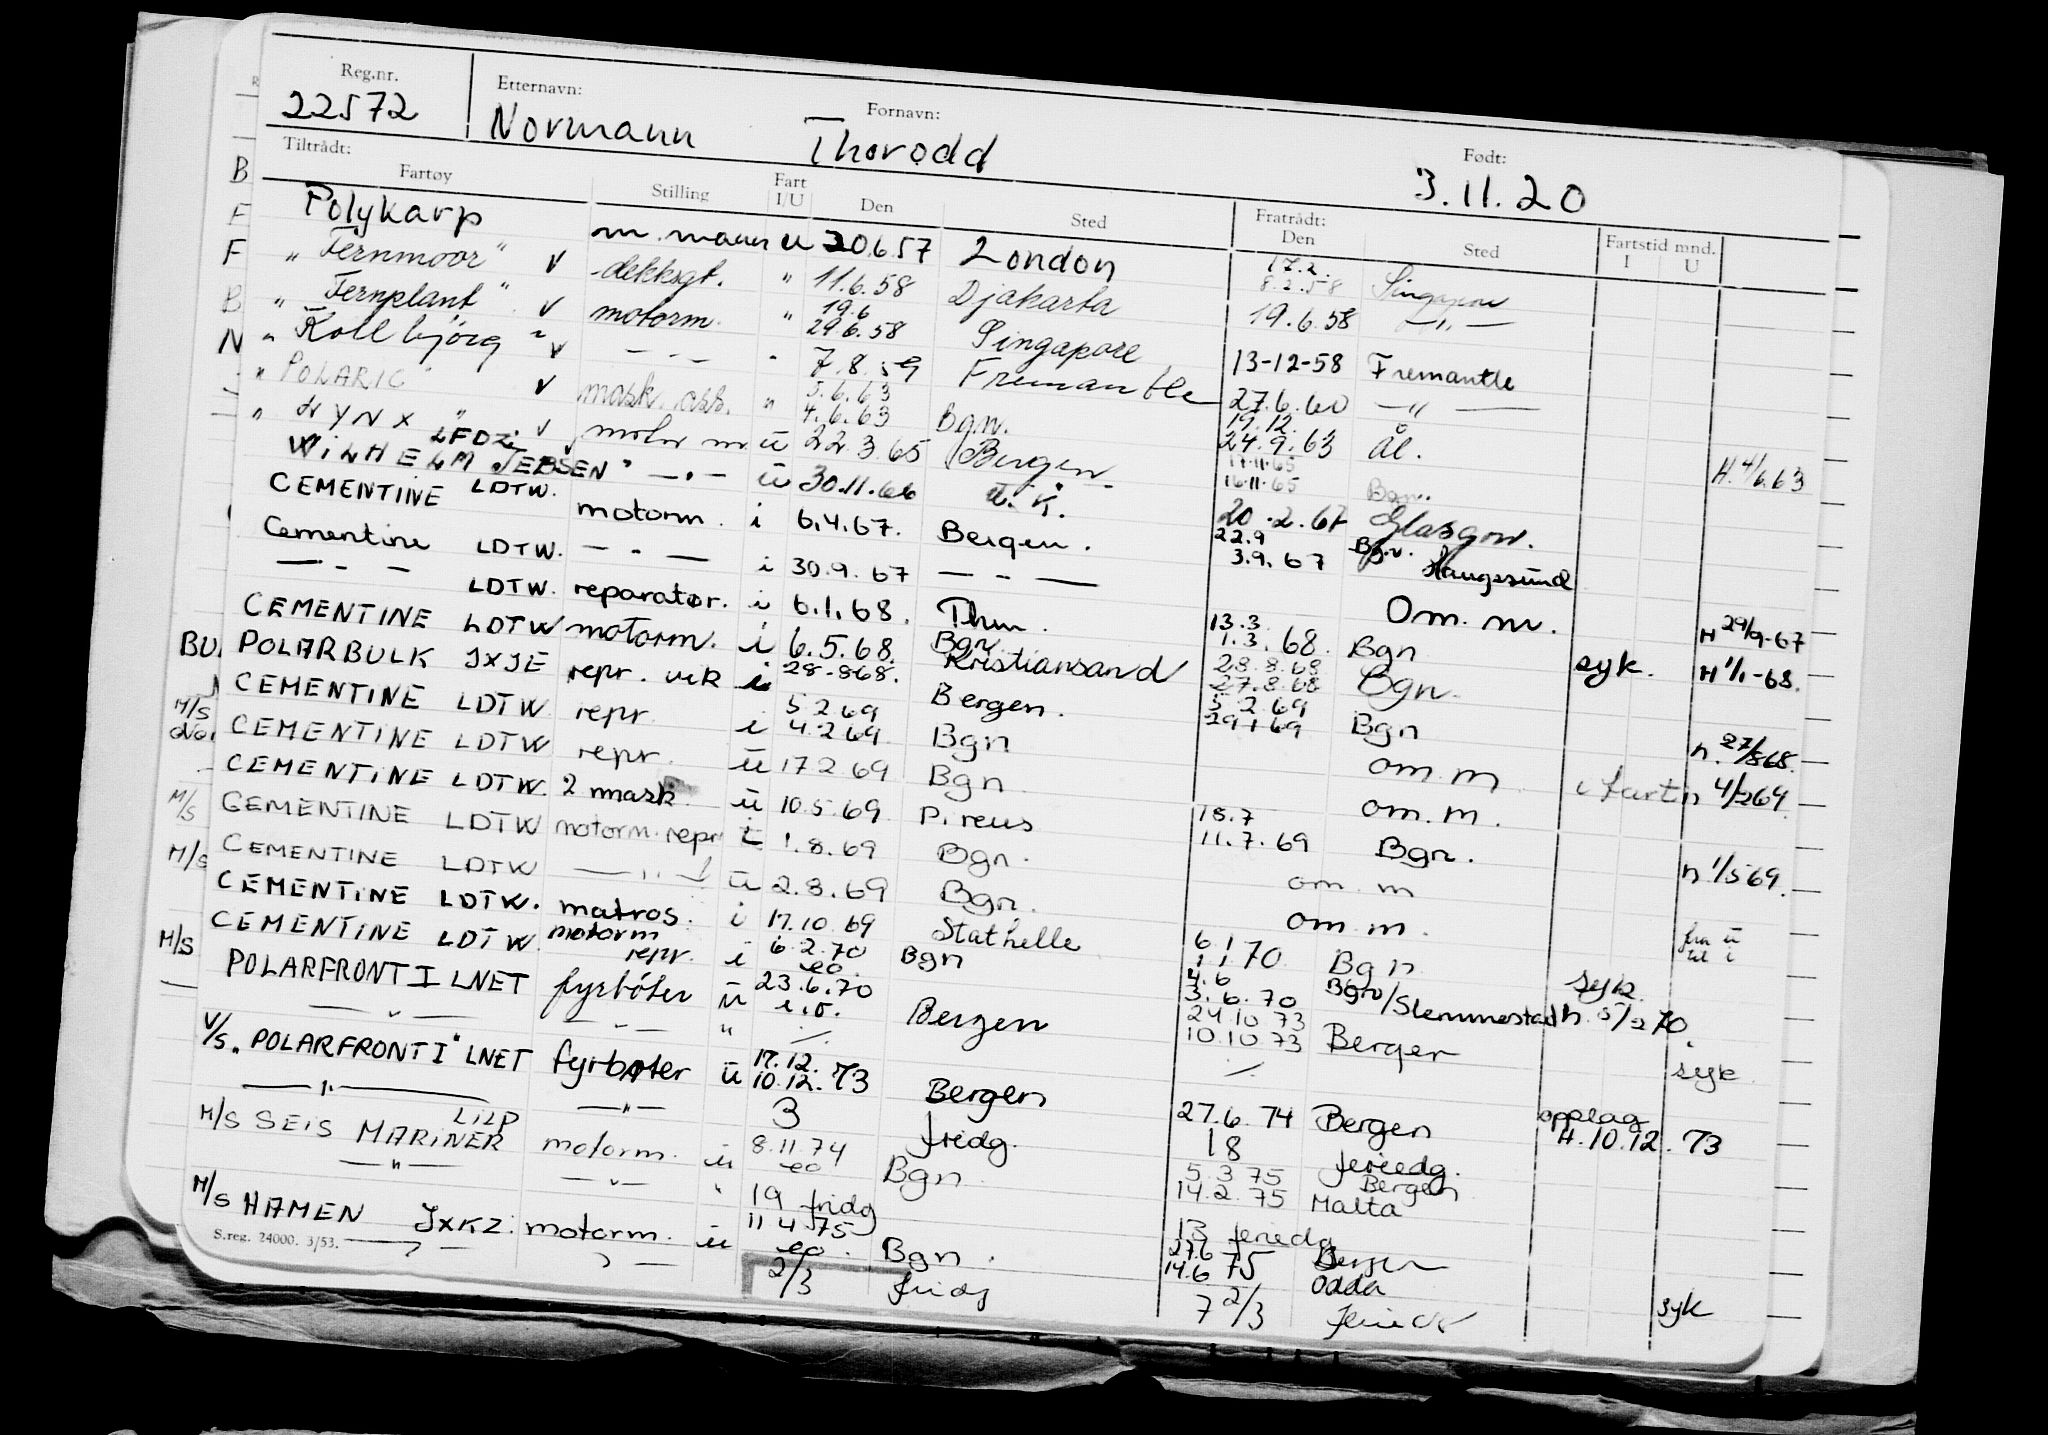 Reg.nr. Etternavn: Fornavn: Født:
22572 Normann Thorodd 3.11.20
Tiltrådt: Fratrådt:
Fartøy Stilling Fart I/U Den Sted Den Sted Fartstid mnd. I U
Polykarp m.mann u 20.6.57 London 17.2. 8.2.58 Singapore
" Fernmoor " V dekksgt. " 11.6.58 Djakarta 19.6.58 — " —
" Fernplant " V motorm. " 19.6 29.6.58 Singapore 13-12-58 Fremantle
" Kollbjörg " V — " — " 7.8.59 Fremantle 27.6.60 — " —
" POLARIC " V mask. ass. " 5.6.63 4.6.63 Bgn. 19.12. 24.9.63 Ål. H.4/6.63
" LYNX " LFDZ. V motor m. ü 22.3.65 Bergen 17.11.65 16.11.65 Bgn.
WILHELM JEBSEN " — " — ü 30.11.66 U.K. 20.2.67 Glasgow.
CEMENTINE LDTW. motorm. i 6.4.67. Bergen. 22.9 3.9.67 Bgn. Haugesund
Cementine LDTW. — " — i 30.9.67 — " — Om. m. H 29/9-67
— " — LDTW. reparatør. i 6.1.68. Thm. 13.3. 1.3.68. Bgn syk. H 1/1-68.
CEMENTINE LDTW motorm. i 6.5.68. Bgn. Kristiansand 28.8.68 27.8.68 Bgn.
POLARBULK JXJE repr. vik i 28-868. Bergen. 5.2.69 29.1.69 Bgn n. 27/868.
CEMENTINE LDTW repr. i 5.2.69 4.2.69 Bgn om. m i fart n 4/269.
CEMENTINE LDTW repr. ü 17.2.69 Bgn om. m.
CEMENTINE LDTW. 2 mask. ü 10.5.69 Pireus 18.7 11.7.69 Bgn. n 1/5 69.
CEMENTINE LDTW motorm. repr i 1.8.69 Bgn. om. m
CEMENTINE LDTW — " — ü 2.8.69 Bgn. om. m. fra ü til i
CEMENTINE LDTW. matros. i 17.10.69 Stathelle 6.1 1.1 70 Bgn syk.
CEMENTINE LDTW. motorm repr. i 6.2.70 eo. Bgn 4.6 3.6.70 Bgn/Slemmestad h. 5/2 70.
POLARFRONT I LNET fyrböter ü 23.6.70 i.o. Bergen 24.10.73 10.10.73 Bergen syk
— " — — " — "
V/S "POLARFRONT I" LNET fyrbøter ü 17.12. 10.12.73 Bergen 27.6.74 Bergen opplag H.10.12.73
— " — — " — 3 fridg. 18 feriedg.
M/S SEIS MARINER LILP motorm. u 8.11.74 eo Bgn 5.3.75 14.2.75 Bergen Malta
— " — — " — " 19 fridg 13 feriedg
M/S HAMEN JXKZ. motorm. u 11.4.75 eo. Bgn. 27.6 14.6 75 Bergen Odda syk
— " — — " — 2/3 fridg 7 2/3
S.reg. 24000. 3/53.
B
F
F
B
N
BU
M/S
M/S
M/S
M/S